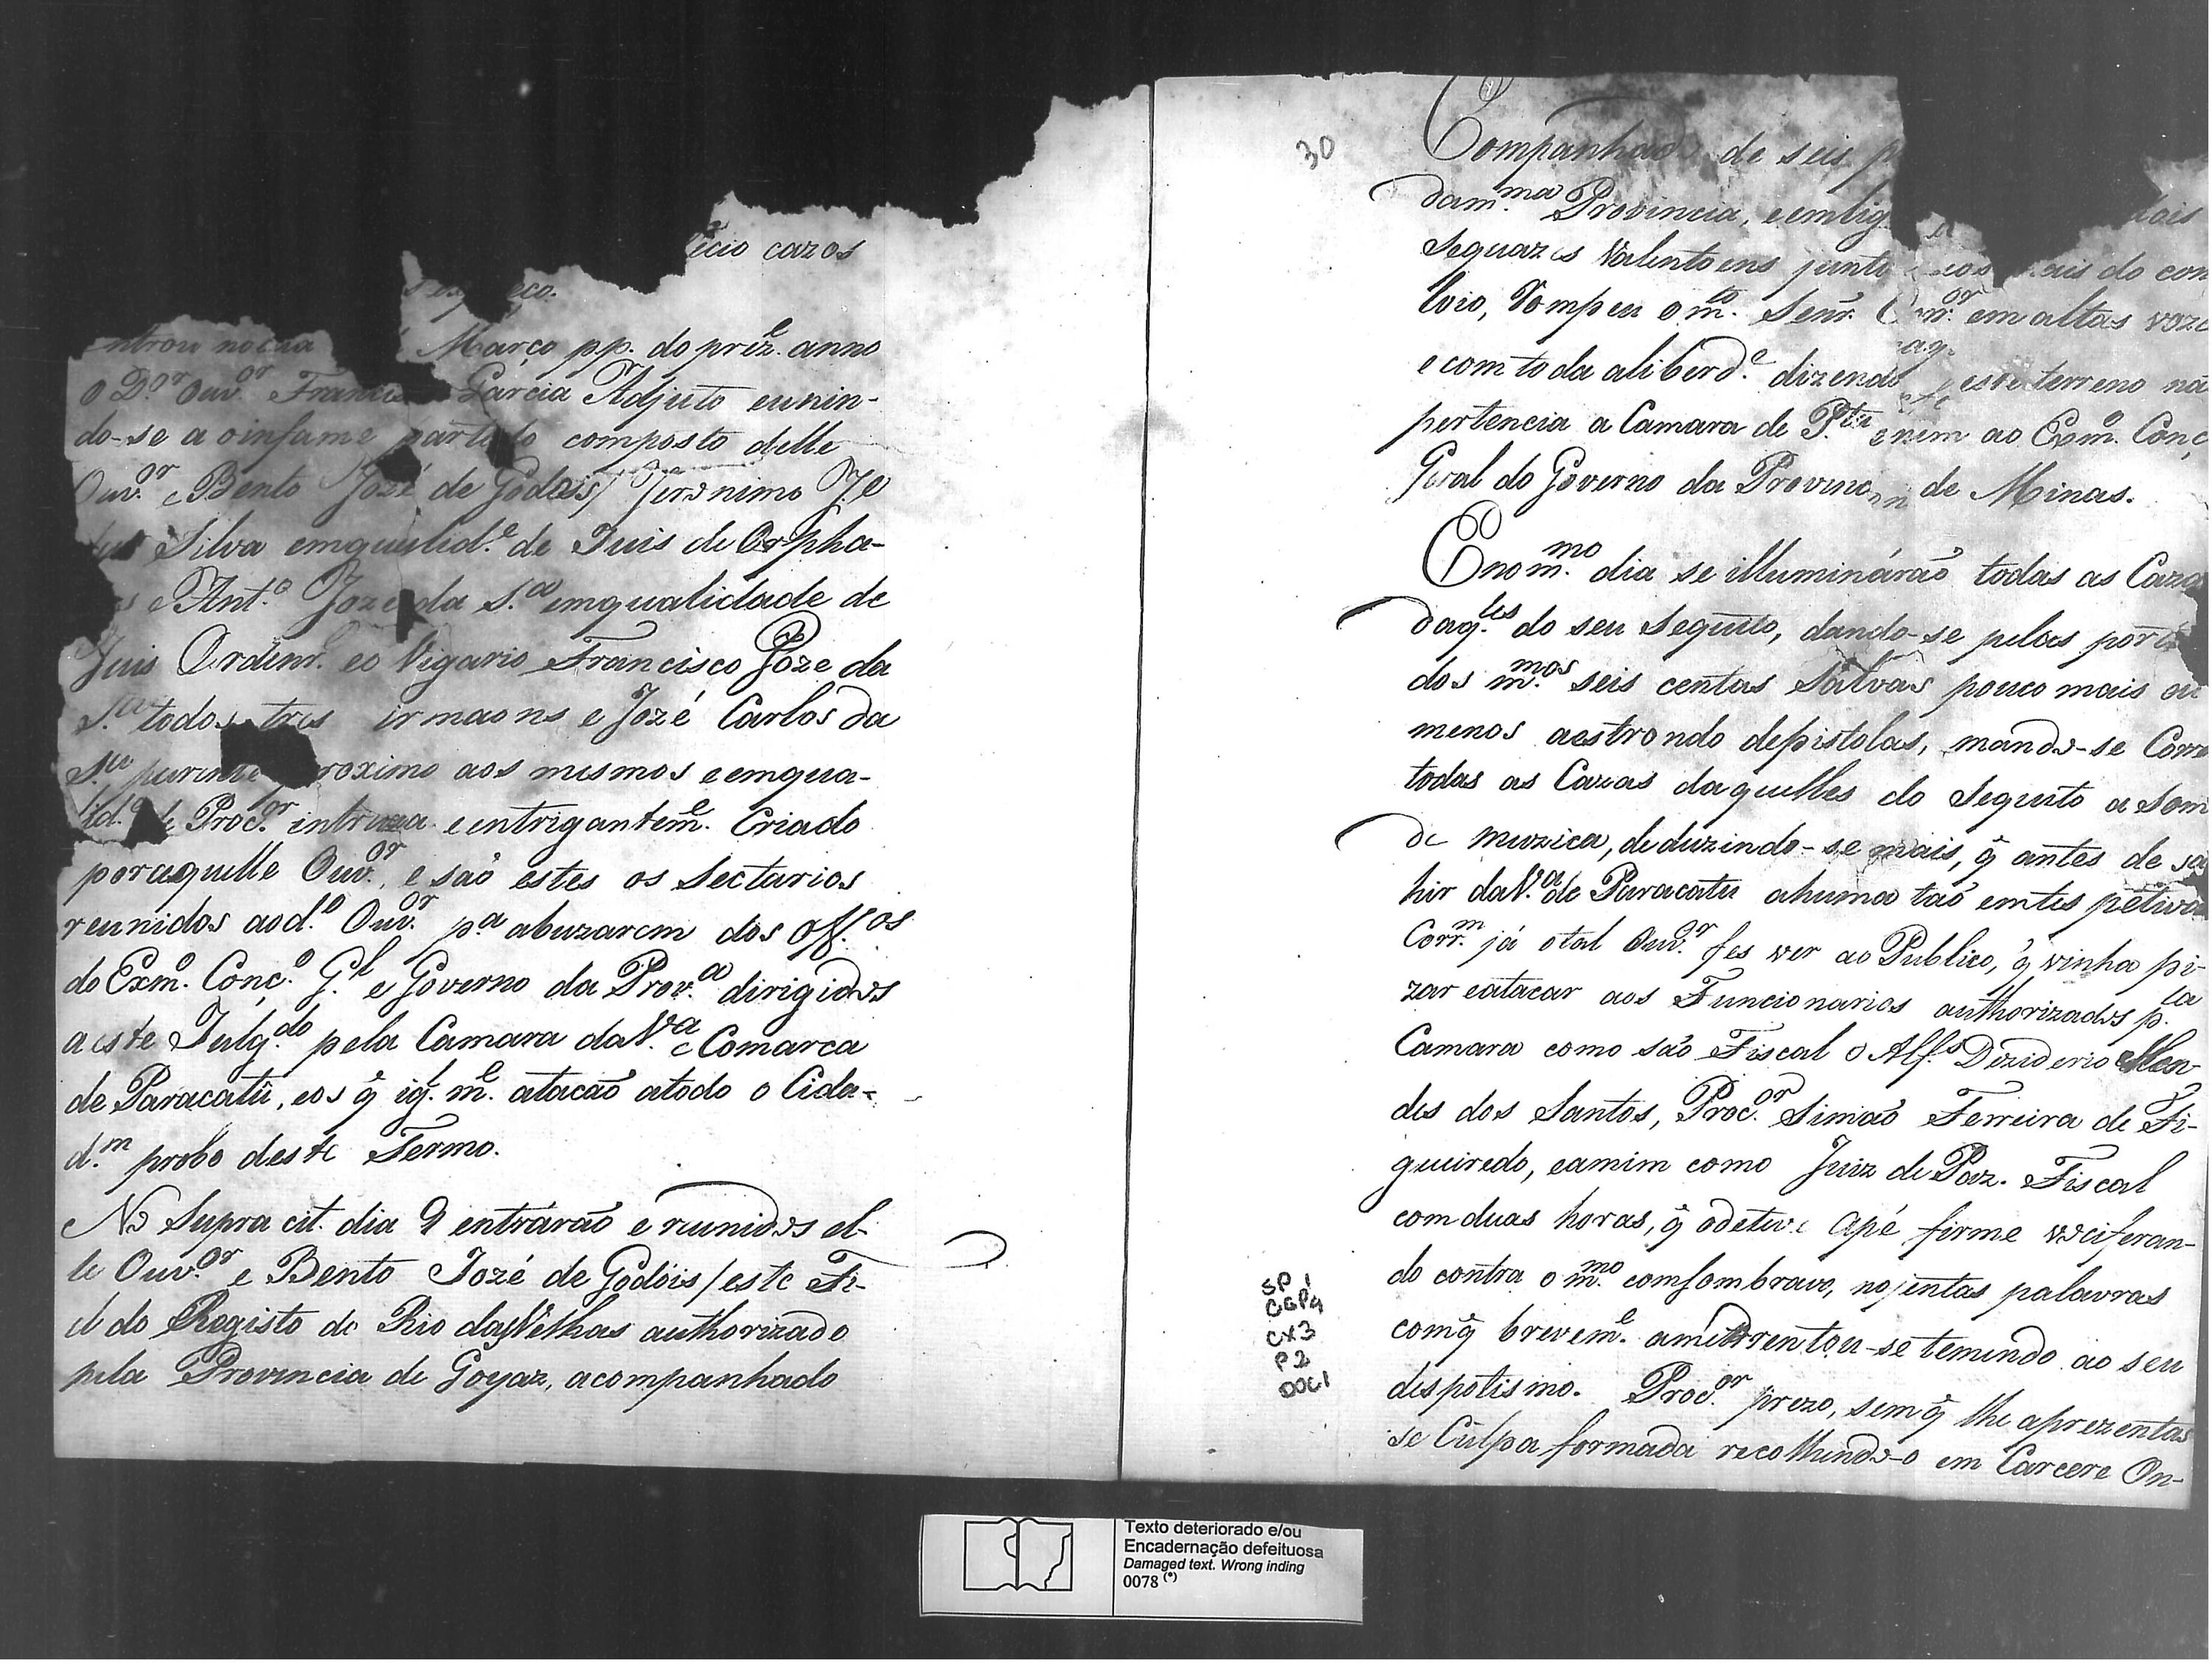 cazos
Março pp. do prez.e anno
O D.or Ouv.or Garcia Adjuto eunin-
do-se a oinfame partido composto delle
Ouv.or e Bento José de Godois/ Jeronimo Je
Silva emqualid.e de Juis de Orpha-
e Ant.o Joze da S.a emqualidade de
Juis Ordinr.o eo Vigario Francisco Joze da
S.a todos tres irmaons e Jozé Carlos da
S.a parente proximo aos mesmos e emqua-
lid.e de Proc.or intruza e entrigantem.e Criado
poraquelle Ouv.or, e são estes os Sectarios
reunidos aod.o Ouv.or p.a abuzarem dos Off.os
do Exm.o Conç.o G.l e Governo da Prov.a dirigidos
a este Julg.do pela Camara da V.a e Comarca
de Paracatû, eos q̃ ig.l m.e atacão atodo o Cida-
d.m probo deste Termo.
No Supra cit. dia 9 entrárão e reunidos el-
le Ouv.or e Bento Jozé de Godois/este Fi-
el do Registo do Rio das Velhas authorizado
pela Provincia de Goyaz, acompanhado
30
Companhado de seis
dam.ma Provincia,
Sequazes Valentoens do con
loio, Rompeu o m.to Senr. Corr.or em altas voze
e com toda aliberd.e dizendo este terreno nã
pertencia a Camara de P.tu enem ao Exm.o Conç
Geral do Governo da Provinc de Minas.
Eno m.mo dia se illuminárão todas as Caza
daq.les do seu Sequito, dando-se pelas port
dos m.mos seis centas Salvas pouco mais ou
menos aestrondo depistolas, mando-se Corre
todas as Cazas daquelles do Sequito a Som
de muzica, deduzindo-se mais, q̃ antes de sa
hir da V.a de Paracatu ahuma taõ emtespetiva
Corr.m já otal Ouv.or fes ver ao Publico, q̃ vinha pi-
zar eatacar aos Funcionarios authorizados p.la
Camara como são Fiscal o Alf.s Deziderio Men-
des dos Santos, Proc.or Simaõ Ferreira de Fi-
gueiredo, eamim como Juiz de Paz. Fiscal
com duas horas, q̃ odetive apé firme vociferan-
do contra o m.mo comsombravo, nojentas palavras
comq̃ brevem.e amedrentou-se temendo ao seu
despotismo. Proc.or prezo, semq̃ lhe aprezentas
se Culpa formada recolhendo-o em Carcere On-
SP 1
CGP4
CX3
P2
DOC1
Texto deteriorado e/ou
Encadernação defeituosa
Damaged text. Wrong inding
0078 (*)